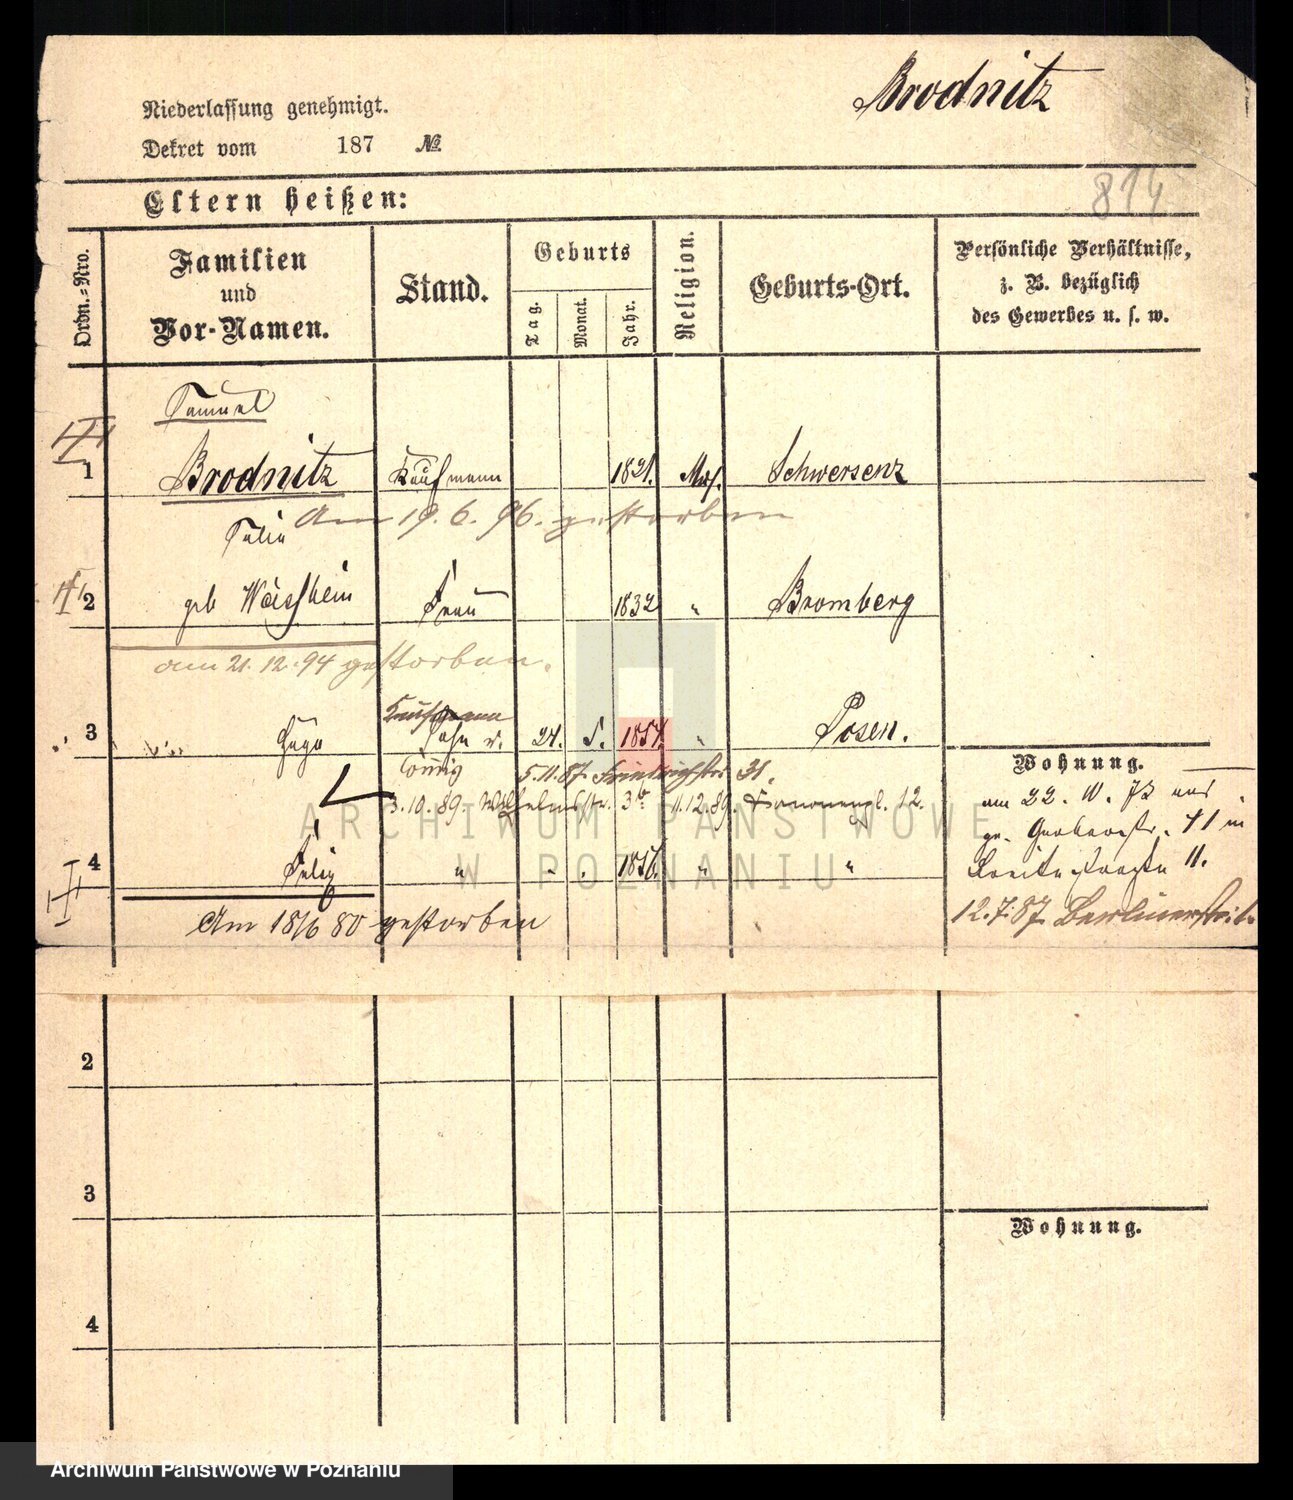 Brodnitz
Niederlassung genehmigt.
Dekret vom 187 №
814
Eltern heißen:
Ordn.-Nro.
Familien
und
Vor-Namen.
Stand.
Geburts
Tag.
Monat.
Jahr.
Religion.
Geburts-Ort.
Persönliche Verhältnisse,
z. B. bezüglich
des Gewerbes u. s. w.
Samuel
1 Brodnitz Kaufmann 1821. Mos. Schwersenz
Am 19. 6. 96. gestorben
2 geb Frau 1832 " Bromberg
am 21. 12. 94 gestorben.
Kaufmann
3 Hugo Sohn 24. 5. 1854. " Posen.
Wohnung.
5.11.87. Friedrichstr 31.
3.10.89. Wilhelmstr. 11.12.89. 12.
am 22. 10. 73 aus
gr. Gerberstr. 41 in
4 Felix " " 1856. " "
Breitestraße 11.
Am 18/6 80 gestorben
12.7.87 Berlinerstr.
ARCHIWUM PAŃSTWOWE
W POZNANIU
2
3
Wohnung.
4
Archiwum Państwowe w Poznaniu